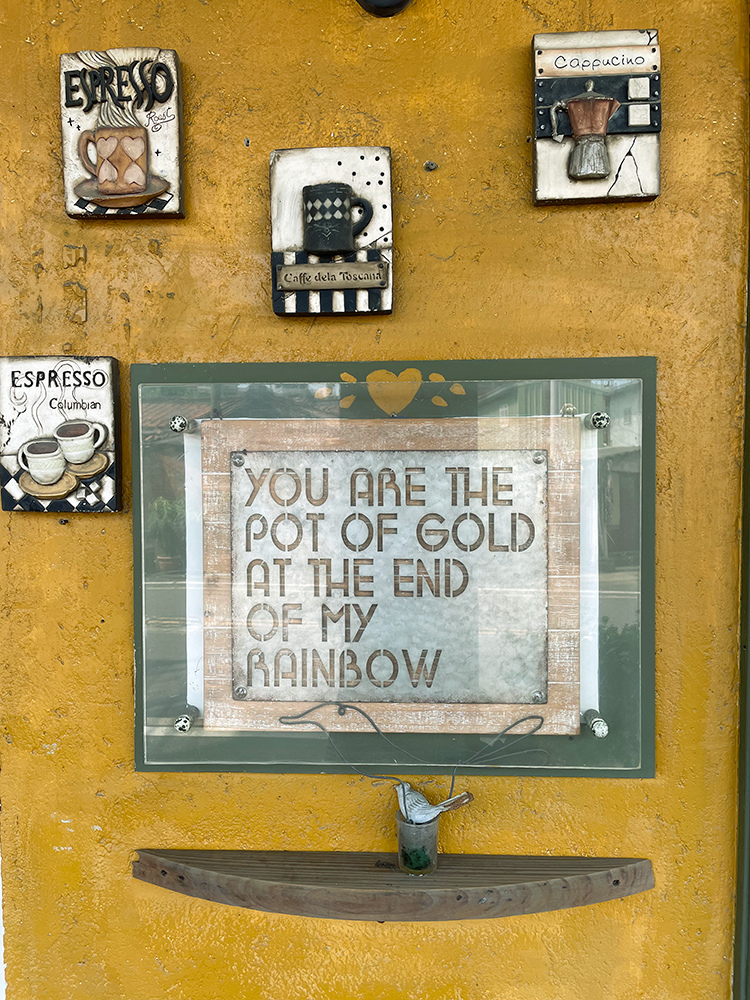 ESPRESSO
Roast
Cappucino
Caffe dela Toscana
ESPRESSO
Columbian
YOU ARE THE
POT OF GOLD
AT THE END
OF MY
RAINBOW